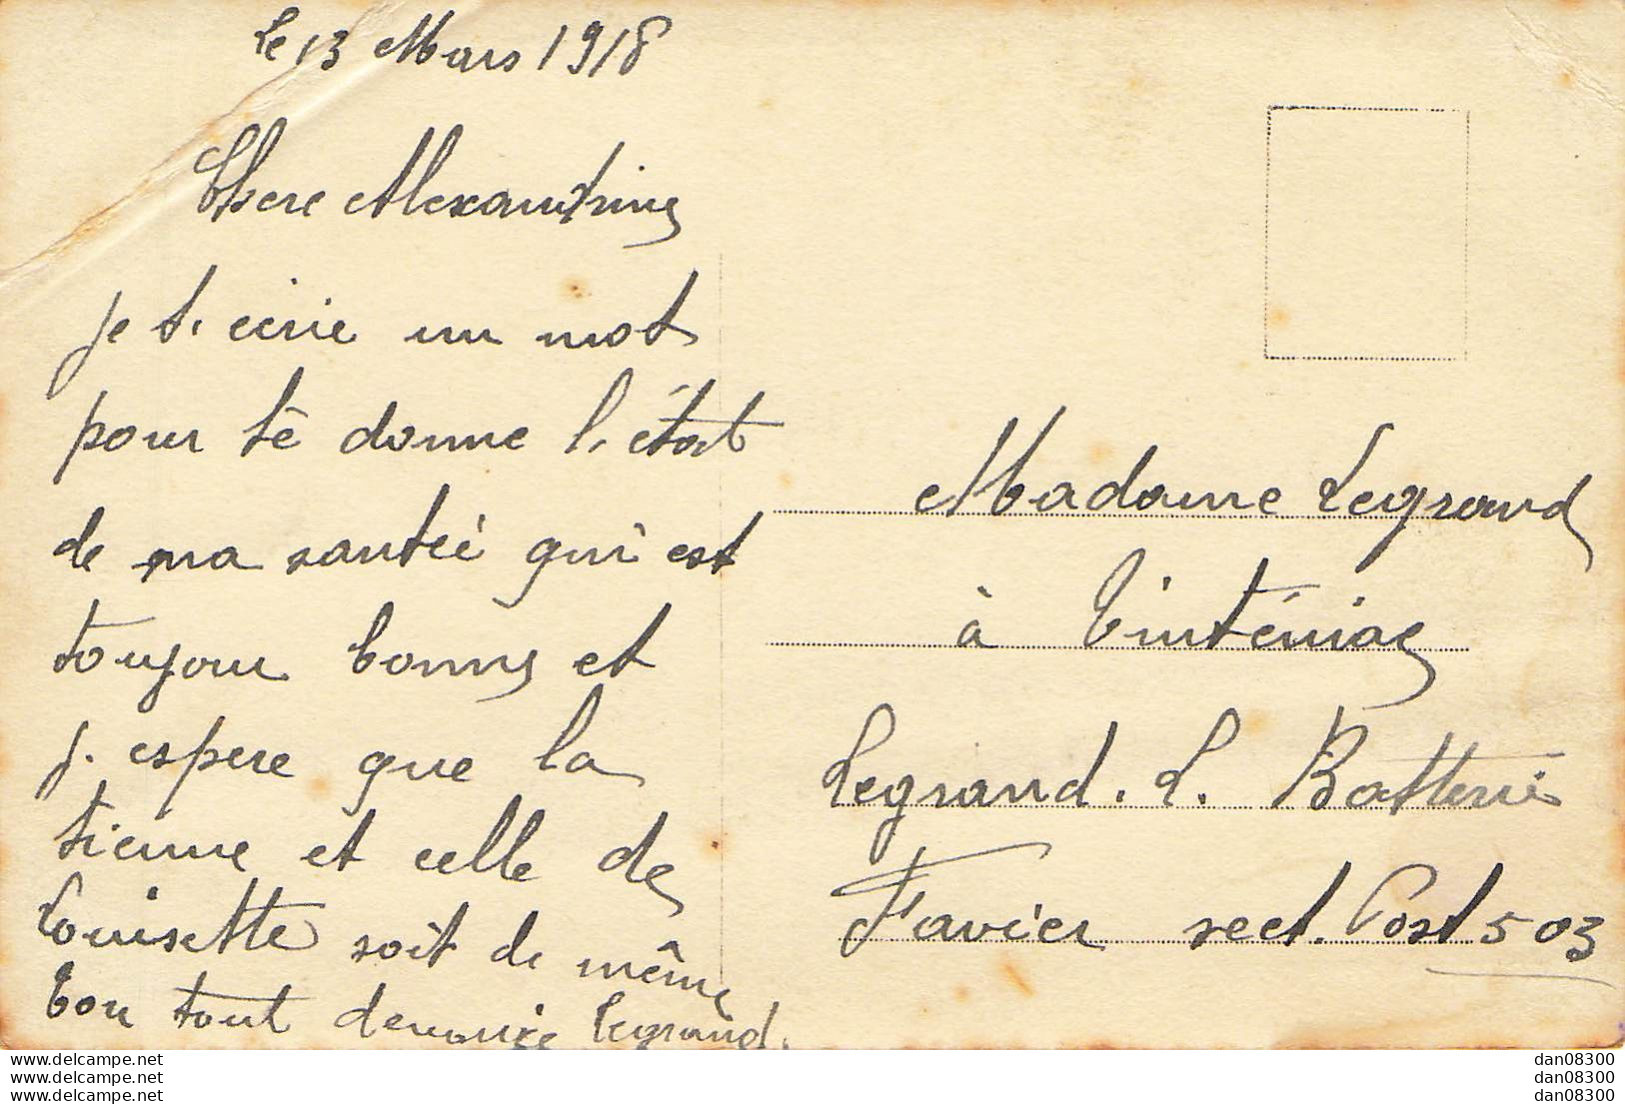 le 13 Mars 1918
Chere Alexandrine
je t. ecrie un mot
pour tè donne l. état
de ma santéé qui est
toujour bonne et
j. espere que la
tienne et celle de
Louisette soit de même
ton tout Legrand.
Madame Legrand
à Tinténiac
Legrand. L. Batterie
Favier sect. Post 503
dan08300
dan08300
dan08300
https://www.delcampe.net
https://www.delcampe.net
https://www.delcampe.net